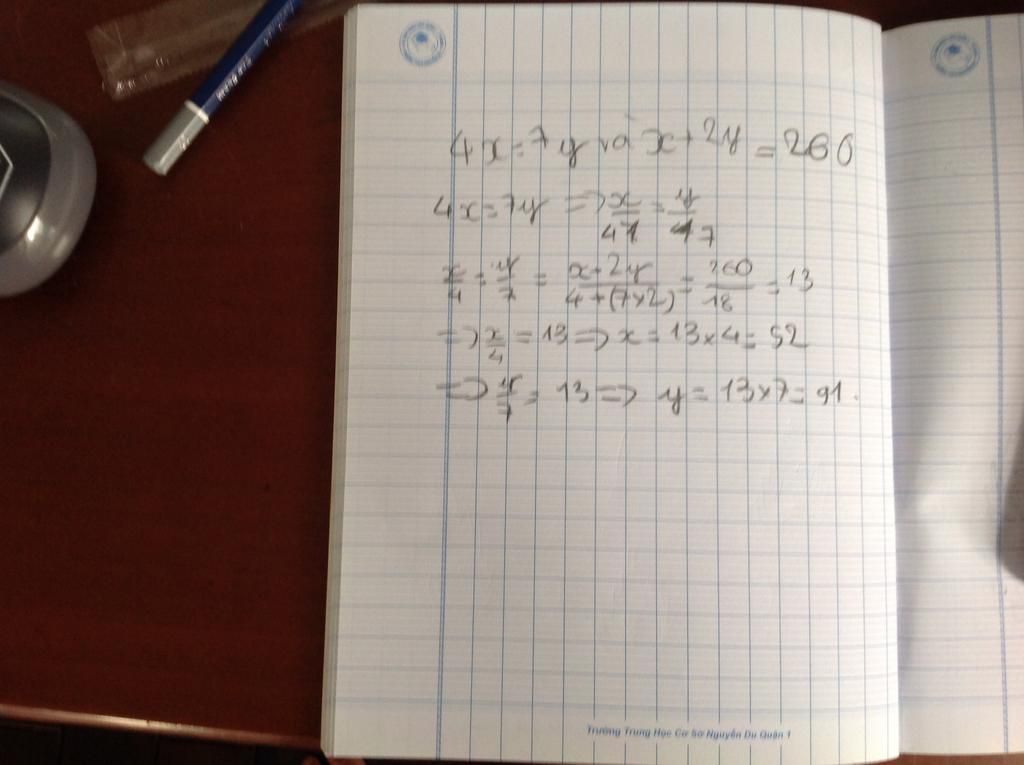 4x = 7y và x + 2y = 260
4x = 7y => x/4 = y/7
x/4 = y/7 = x + 2y / 4 + (7 x 2) = 260/18 = 13
=> x/4 = 13 => x = 13 x 4 = 52
=> y/7 = 13 => y = 13 x 7 = 91.
Trường Trung Học Cơ Sở Nguyễn Du Quận 1